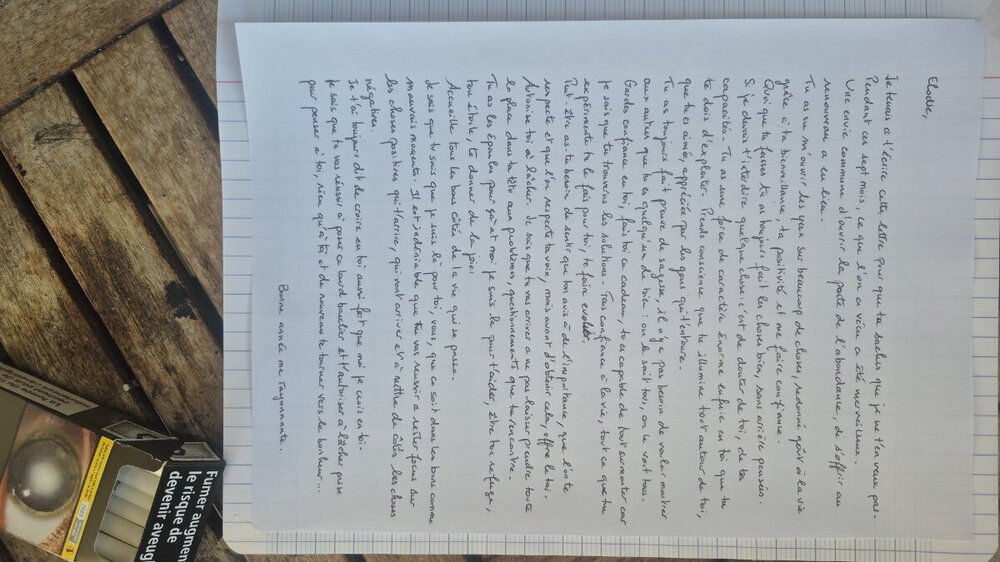 Elodie,
Je tenais à t'écrire cette lettre pour que tu saches que je ne t'en veux pas.
Pendant ces sept mois, ce que l'on a vécu a été merveilleux.
Une envie commune d'ouvrir la porte de l'abondance, de s'offrir au
renouveau a eu lieu.
Tu as su m'ouvrir les yeux sur beaucoup de choses, redonné goût à la vie
grâce à ta bienveillance, ta positivité et me faire confiance.
Quoi que tu fasses tu as toujours fait les choses bien, sans arrière pensées.
Si je devais t'interdire quelque chose c'est de douter de toi, de tes
capacités. Tu as une force de caractère énorme enfuie en toi que tu
te dois d'exploiter. Prends conscience que tu illumine tout autour de toi,
que tu es aimée, appréciée par les gens qui t'entoure.
Tu as toujours fait preuve de sagesse, il n'y a pas besoin de vouloir montrer
aux autres que tu es quelqu'un de bien : on le sait tous, on le voit tous.
Gardes confiance en toi, fais toi ce cadeau, tu es capable de tout surmonter car
je sais que tu trouveras les solutions. Fais confiance à la vie, tout ce que tu
expérimente te le fais pour toi, te faire evoluer.
Peut être as-tu besoin de sentir que ton avis a de l'importance, que l'on te
respecte et que l'on respecte ta voie, mais avant d'obtenir cela, offre le toi.
Autorise toi à lâcher. Je sais que tu vas arriver a ne pas laisser prendre toute
la place dans ta tête aux problèmes, questionnements que tu rencontre.
Tu as les épaules pour ça et moi je suis là pour t'aider, être ton refuge,
ton étoile, te donner de la joie.
Accueille tous les bons côtés de la vie qui se passe.
Je sais que tu sais que je suis là pour toi, vous, que ca soit dans les bons comme
mauvais moments. Il est indéniable que tu vas reussir a rester focus sur
les choses positives qui t'arrive, qui vont arriver et à mettre de côtés les choses
négatives.
Je t'ai toujours dit de croire en toi aussi fort que moi je crois en toi.
Je sais que tu vas réussir à poser ce lourd bouclier et t'autoriser à lâcher prise
pour penser à toi, rien qu'à toi et de nouveau te tourner vers le bonheur...
Bonne année ma rayonnante.
Fumer augmen
le risque de
devenir aveug